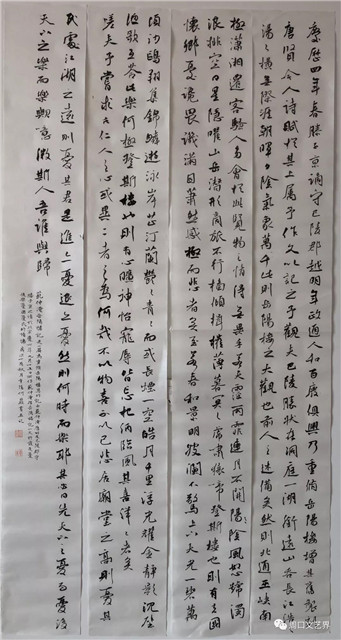 慶曆四年春滕子京謫守巴陵郡越明年政通人和百廢俱興乃重脩岳陽樓增其舊制刻
唐賢今人詩賦於其上屬予作文以記之予觀夫巴陵勝狀在洞庭一湖銜遠山吞長江浩浩湯
湯橫無際涯朝暉夕陰氣象萬千此則岳陽樓之大觀也前人之述備矣然則北通巫峽南
極瀟湘遷客騷人多會於此覽物之情得無異乎若夫霪雨霏霏連月不開陰風怒號濁
浪排空日星隱曜山岳潛形商旅不行檣傾楫摧薄暮冥冥虎嘯猿啼登斯樓也則有去國
懷鄉憂讒畏譏滿目蕭然感極而悲者矣至若春和景明波瀾不驚上下天光一碧萬
頃沙鷗翔集錦鱗游泳岸芷汀蘭鬱鬱青青而或長煙一空皓月千里浮光耀金靜影沉璧
漁歌互答此樂何極登斯樓也則有心曠神怡寵辱皆忘把酒臨風其喜洋洋者矣
嗟夫予嘗求古仁人之心或異二者之為何哉不以物喜不以己悲居廟堂之高則憂其
民處江湖之遠則憂其君是進亦憂退亦憂然則何時而樂耶其必曰先天下之憂而憂後
天下之樂而樂歟噫微斯人吾誰與歸
周口文艺界